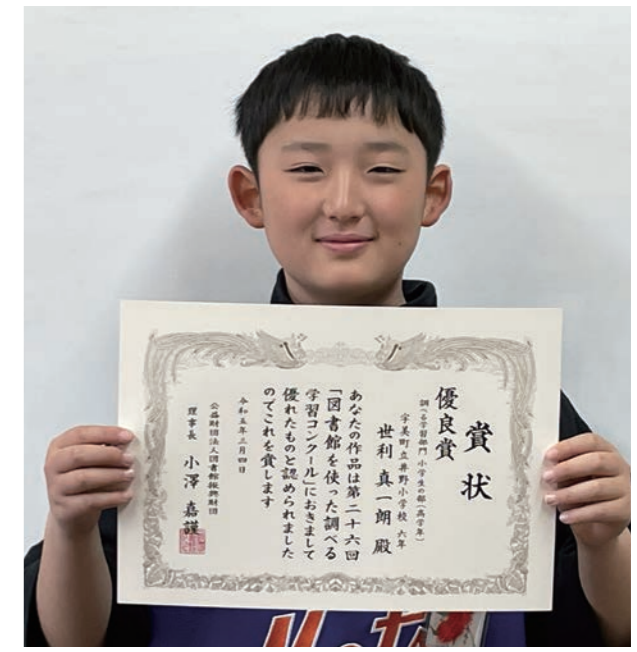 賞状
優良賞
調べる学習部門 小学生の部(高学年)
宇美町立井野小学校 六年
世利 真一朗 殿
あなたの作品は第二十六回
「図書館を使った調べる
学習コンクール」におきまして
優れたものと認められました
のでこれを賞します
令和五年三月四日
公益財団法人図書館振興財団
理事長 小澤 嘉謹